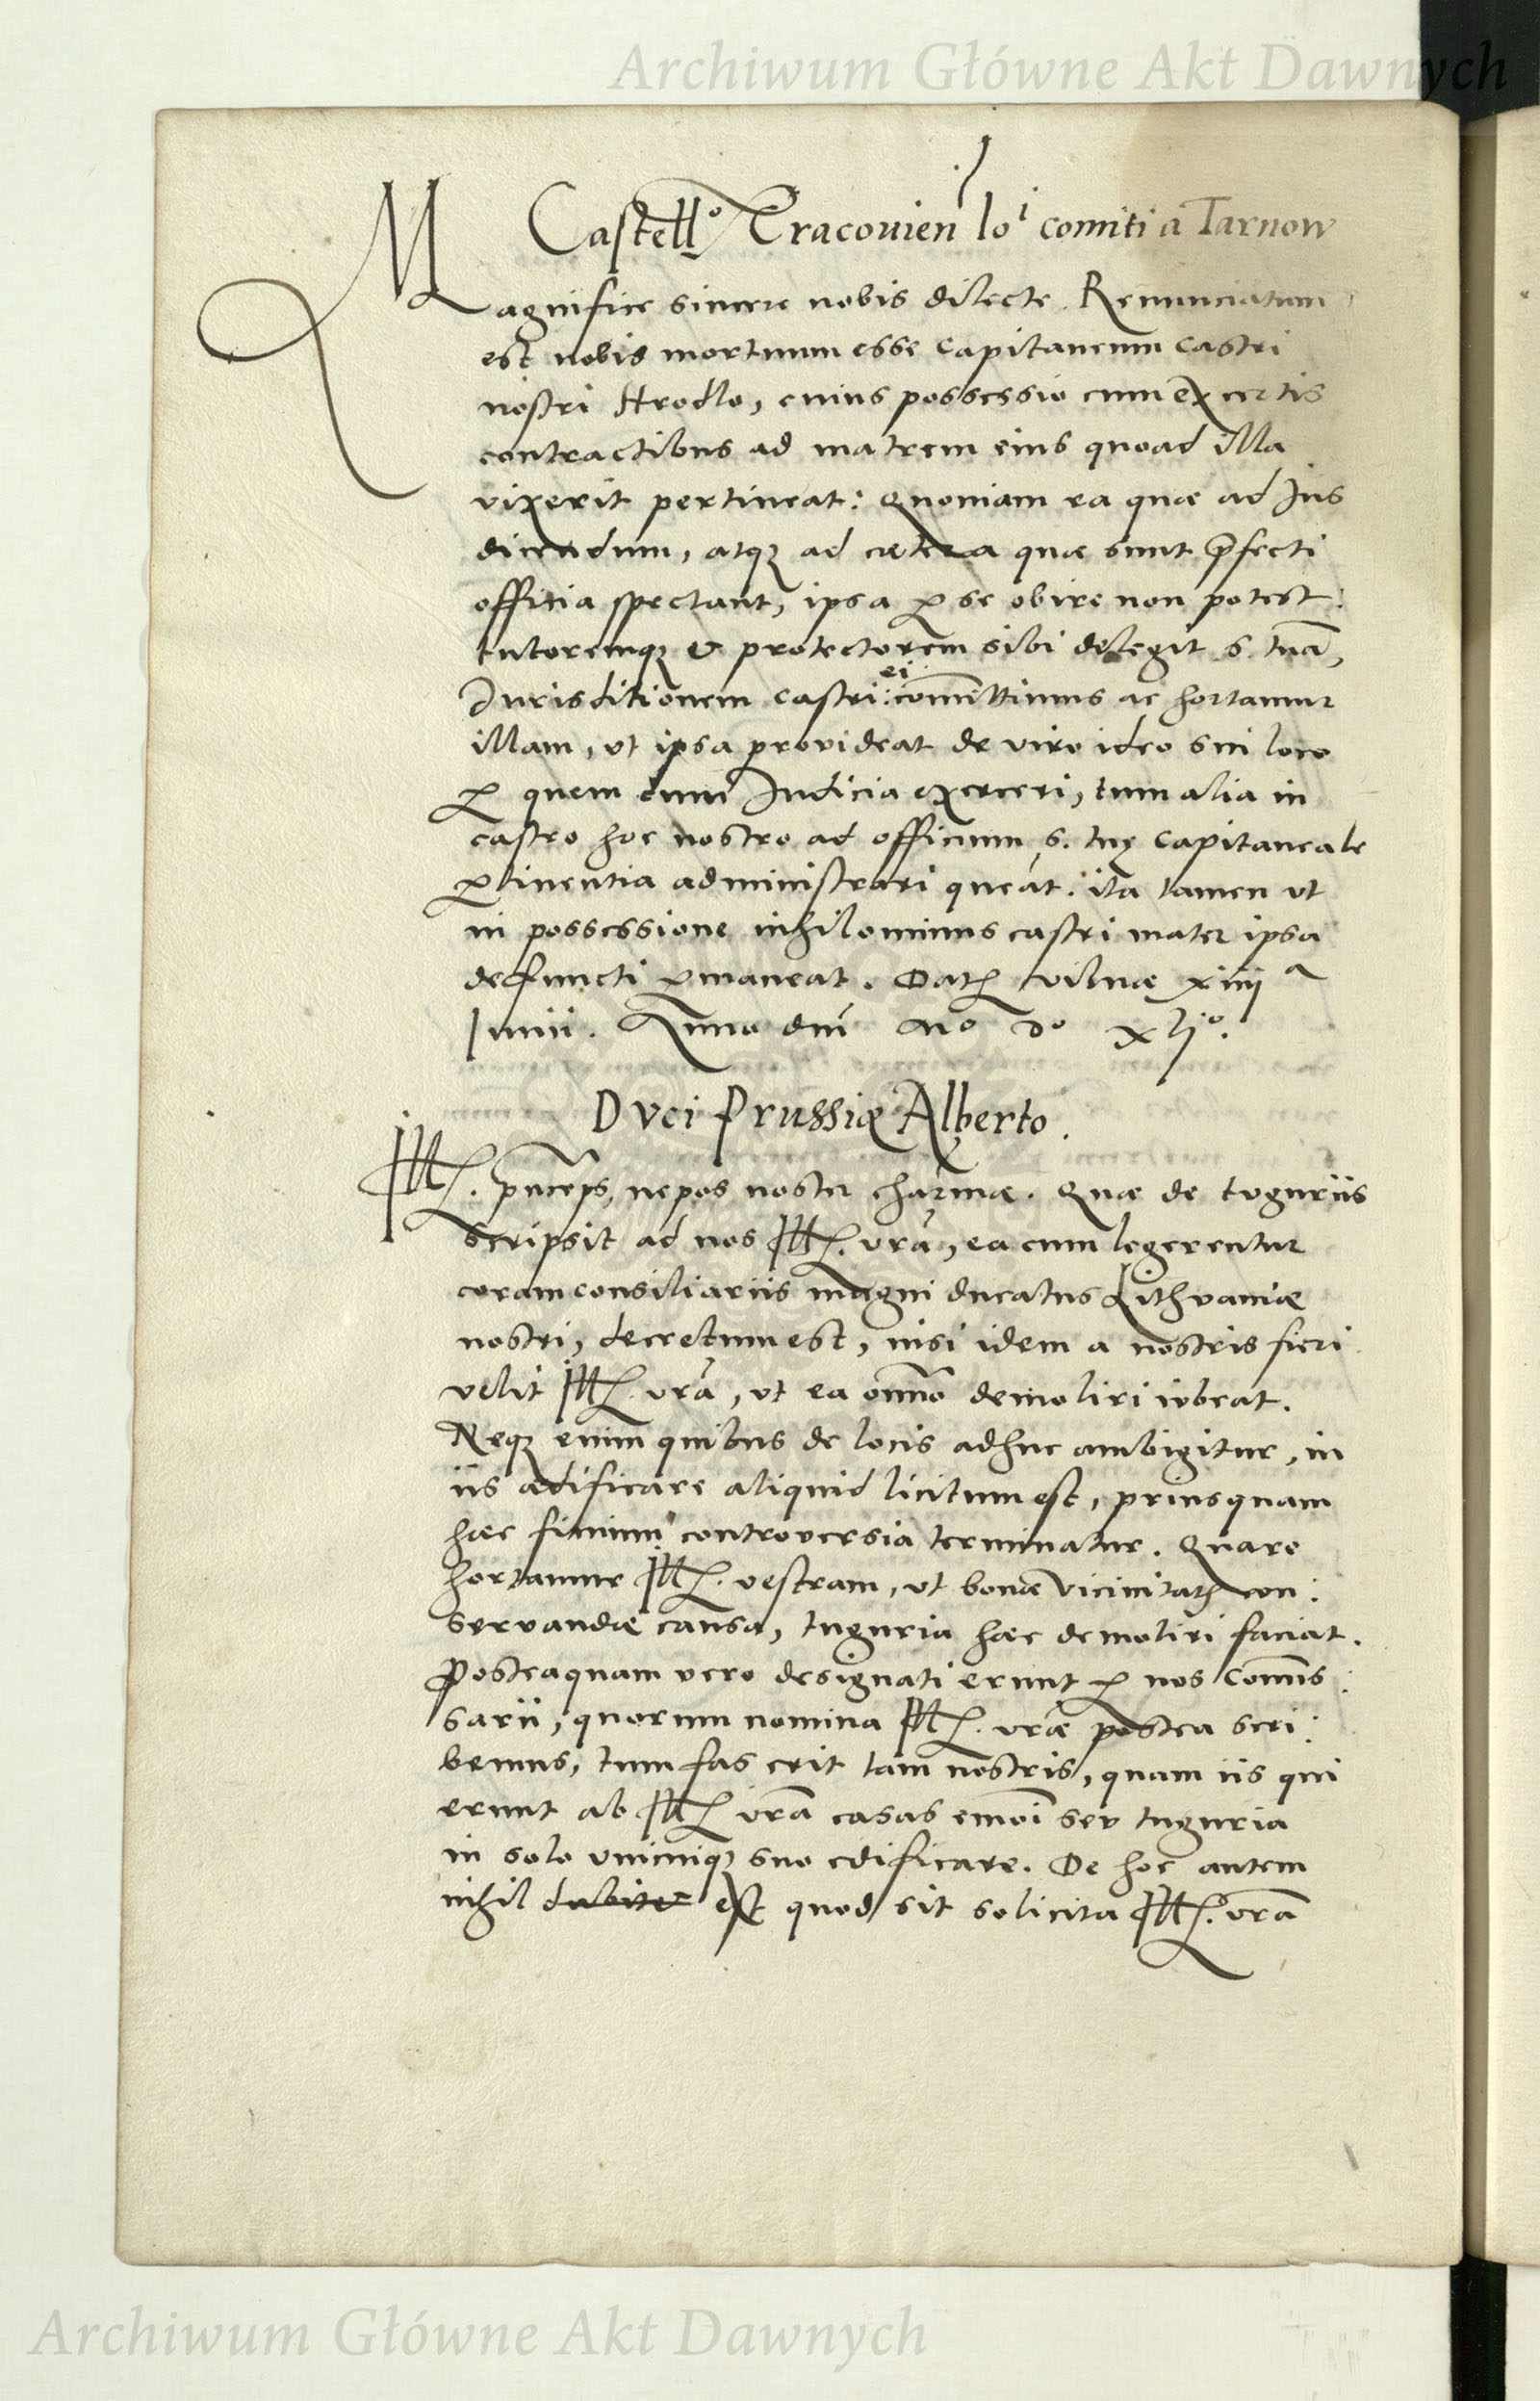 Archiwum Główne Akt Dawnych
Castell.º Cracovien Ioⁱ comiti a Tarnow
Magnifice sincere nobis dilecte. Renunciatum
est nobis mortuum esse Capitaneum Castri
nostri Hrodlo, cuius possessio cum ex certis
contractibus ad matrem eius quoad illa
vixerit pertineat: Quoniam ea quae ad Ius
dicendum, atqꝫ ad caetera quae sunt p̄fecti
officia spectant, ipsa ꝑ se obire non potest:
tutoremqꝫ & protectorem sibi delegit S. tuā,
Jurisditionem castri ei com̄ittimus ac hortamur
illam, ut ipsa provideat de viro ideo sui loco
ꝑ quem cum Judicia exerceri, tum alia in
castro hoc nostro ad officium S. tuę Capitaneale
ꝑtinentia administrari queāt. ita tamen ut
in possessione nihilominus castri mater ipsa
defuncti ꝑmaneat. Datꝫ vilnae xiiijᵃ
Junii. Anno dnī Mº Dº xljº.
Dvci Prussiae Alberto.
Ill. pnceps, nepos noster charme. Quae de tuguriis
scripsit ad nos Ill. vrā, ea cum legerentur
coram consiliariis magni ducatus Lithvaniae
nostri, decretum est, nisi idem a nostris fieri
velit Ill. vrā, ut ea omnō demoliri iubeat.
Neqꝫ enim quibus de locis adhuc ambigitur, in
iis aedificare aliquid licitum est, priusquam
haec finium controversia terminatur. Quare
hortamur Ill. vestram, ut bonae vicinitatꝫ con:
servandae causa, tuguria haec demoliri faciat.
Posteaquam vero designati erunt ꝑ nos Com̄is:
sarii, quorum nomina Ill. vrae postea scri:
bemus, tum fas erit tam nostris, quam iis qui
erunt ab Ill vrā casas emōi seu tuguria
in solo unicuiqꝫ suo edificare. De hoc autem
nihil dubiter est quod sit solicita Ill. vrā
Archiwum Główne Akt Dawnych